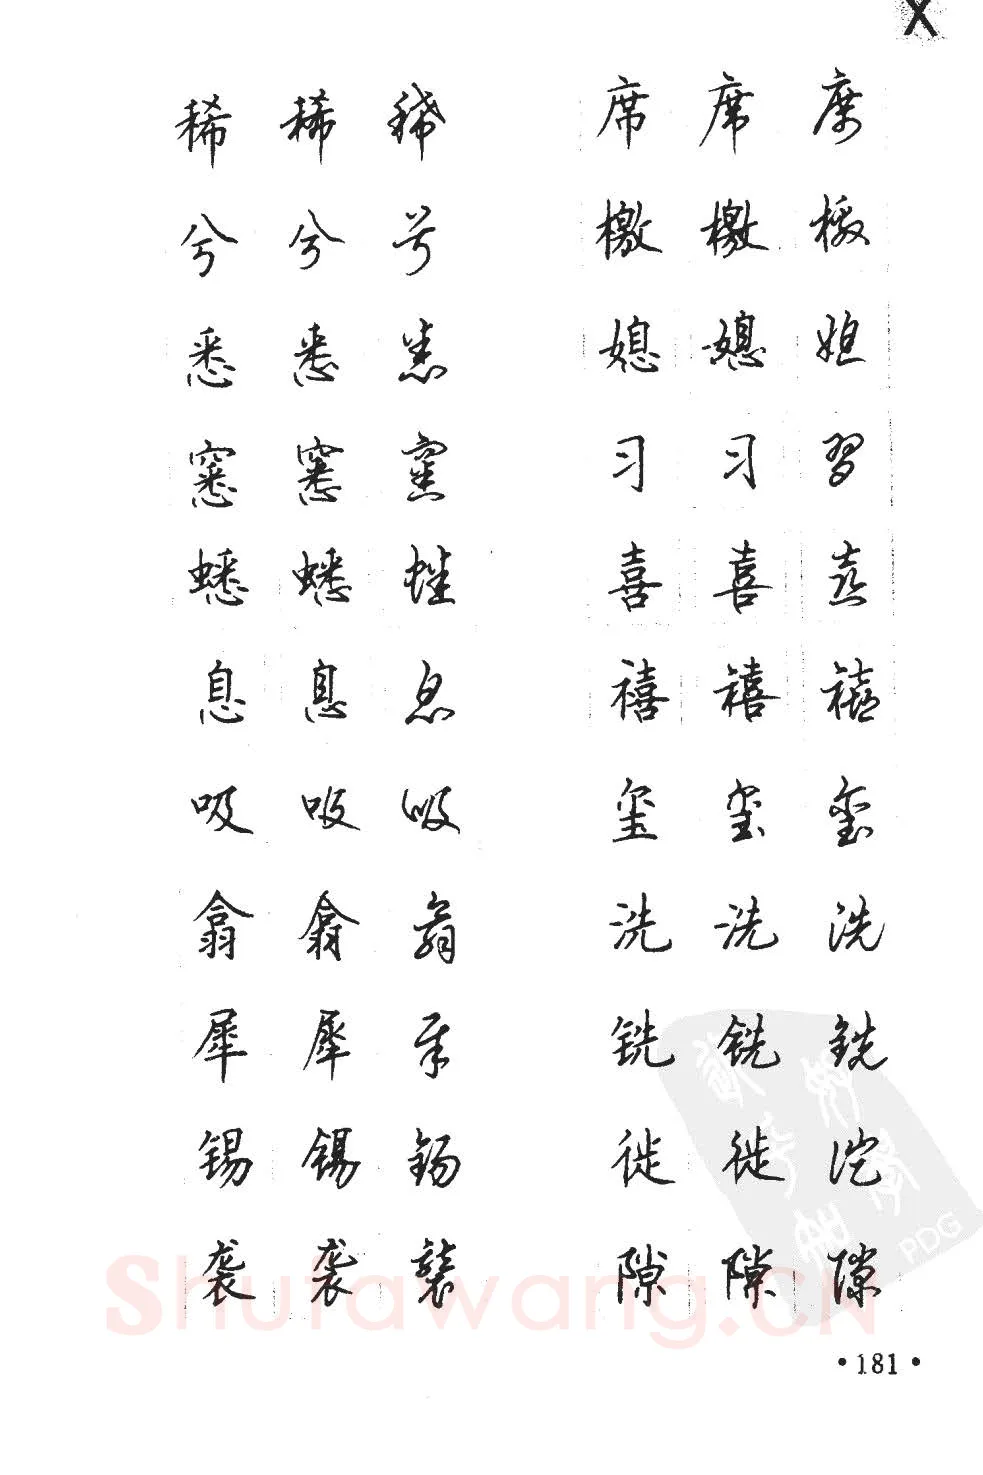 X
稀 稀 稀 席 席 席
兮 兮 兮 檄 檄 檄
悉 悉 悉 媳 媳 媳
窸 窸 窸 习 习 習
蟋 蟋 蟋 喜 喜 喜
息 息 息 禧 禧 禧
吸 吸 吸 玺 玺 玺
翕 翕 翕 洗 洗 洗
犀 犀 犀 铣 铣 铣
锡 锡 锡 徙 徙 徙
袭 袭 襲 隙 隙 隙
PDG
Shufawang.CN
·181·